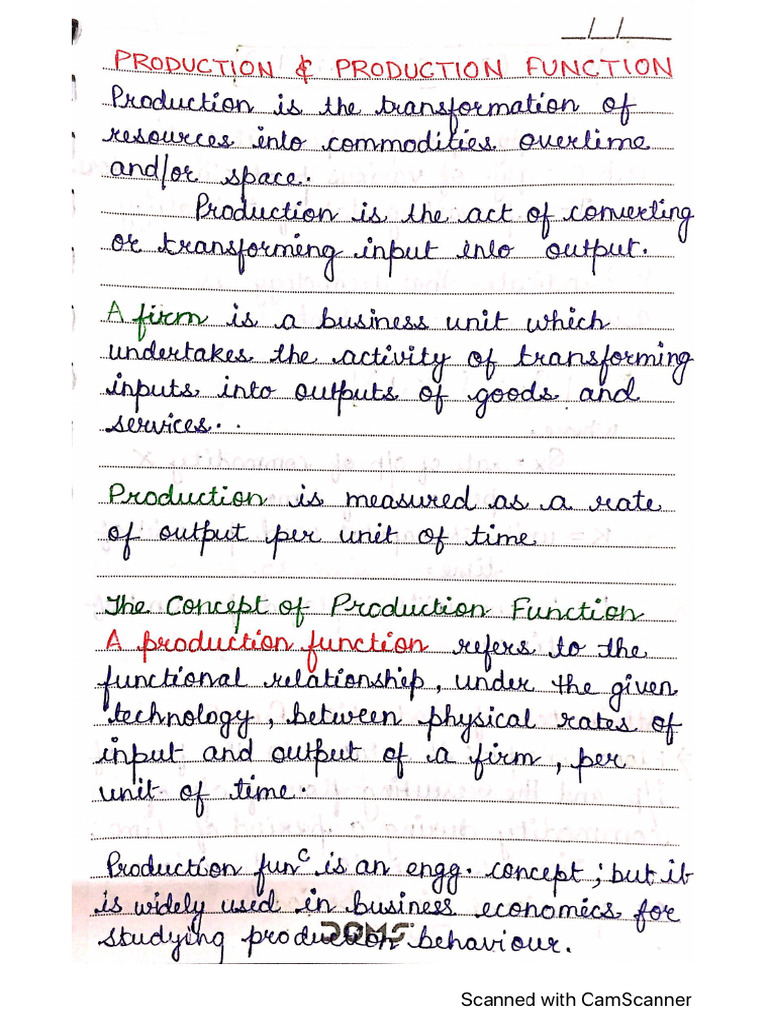 __/__/____
PRODUCTION & PRODUCTION FUNCTION
Production is the transformation of
resources into commodities overtime
and/or space.
Production is the act of converting
or transforming input into output.
A firm is a business unit which
undertakes the activity of transforming
inputs into outputs of goods and
services..
Production is measured as a rate
of output per unit of time
The Concept of Production Function
A production function refers to the
functional relationship, under the given
technology, between physical rates of
input and output of a firm, per
unit of time.
Production funᶜ is an engg. concept; but it
is widely used in business economics for
studying production behaviour.
DOMS
Scanned with CamScanner